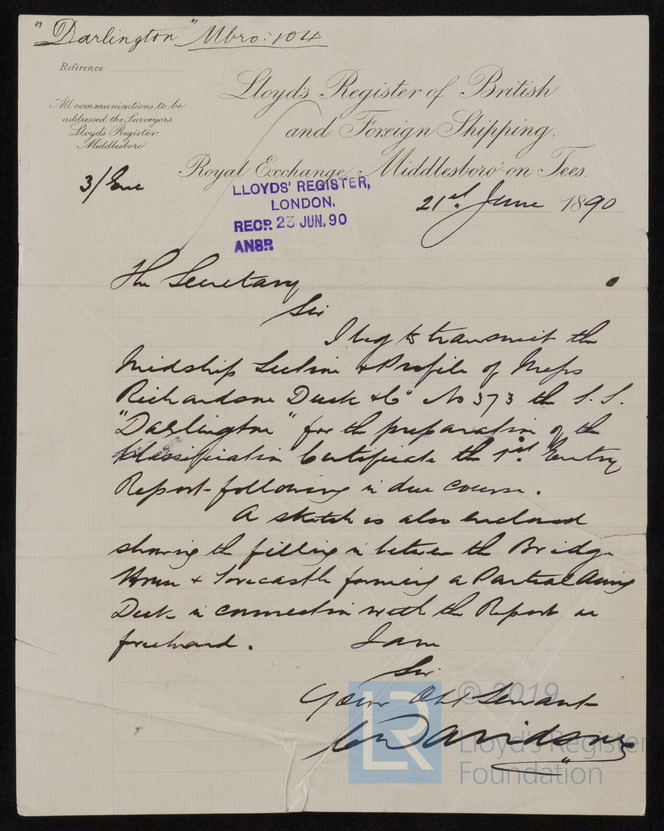 "Darlington" Mbro: 104
Reference
All communications to be
addressed the Surveyors.
Lloyds Register.
Middlesboro
Lloyds Register of British
and Foreign Shipping.
Royal Exchange Middlesboro' on Tees.
3/Enc
LLOYDS' REGISTER,
LONDON.
RECD. 23 JUN. 90
ANSR
21st June 1890
The Secretary
Sir
I beg to transmit the
Midship Section & Profile of Messrs
Richardson Duck & Co No 373 the S.S.
"Darlington" for the preparation of the
Classification Certificate the 1st Entry
Report following in due course.
A sketch is also enclosed
showing the filling in between the Bridge
House & Forecastle forming a Partial Awning
Deck in connection with the Report on
freeboard.
I am
Sir
Your Obt Servant
Davidson
© 2019
LR
Lloyd's Register
Foundation